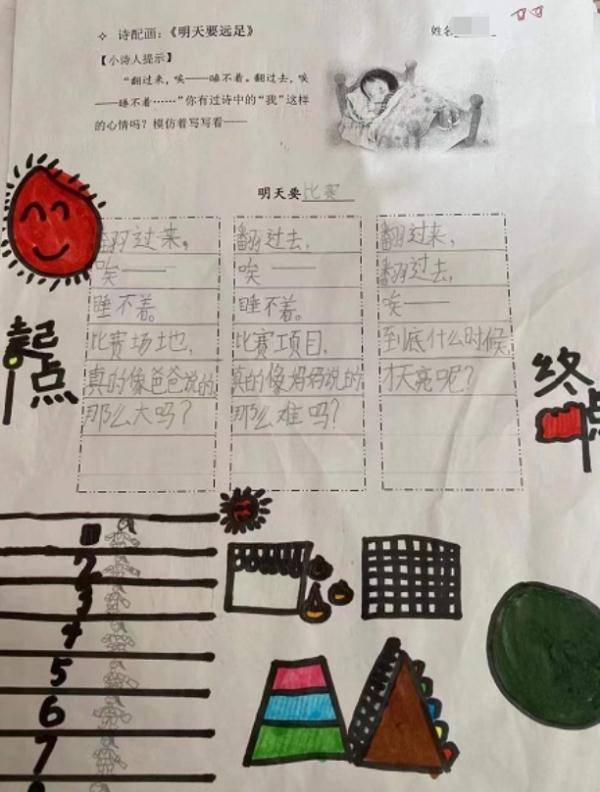 ✧ 诗配画：《明天要远足》 姓名
【小诗人提示】
“翻过来，唉——睡不着。翻过去，唉
——睡不着……”你有过诗中的“我”这样
的心情吗？模仿着写写看——
明天要比赛
翻过来，
唉——
睡不着。
比赛场地，
真的像爸爸说的
那么大吗？
翻过去，
唉——
睡不着。
比赛项目，
真的像妈妈说的
那么难吗？
翻过来，
翻过去，
唉——
到底什么时候，
才天亮呢？
起点
终点
2
3
4
5
6
7